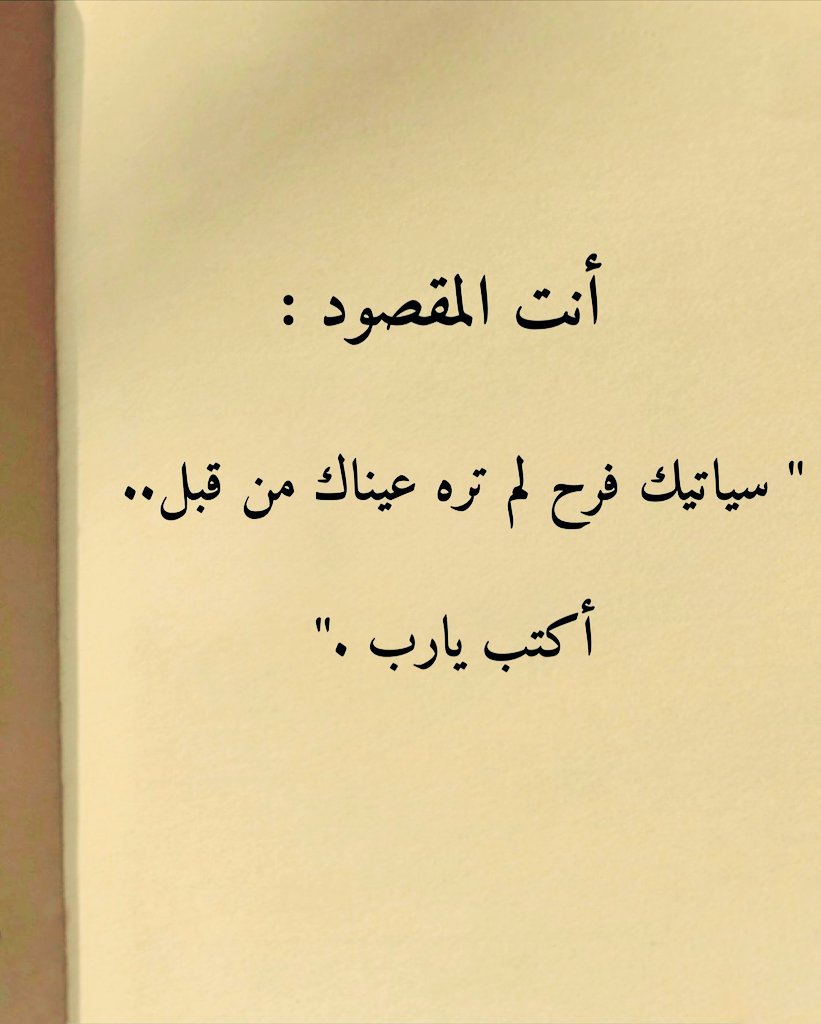 أنت المقصود :
" سياتيك فرح لم تره عيناك من قبل..
أكتب يارب ."